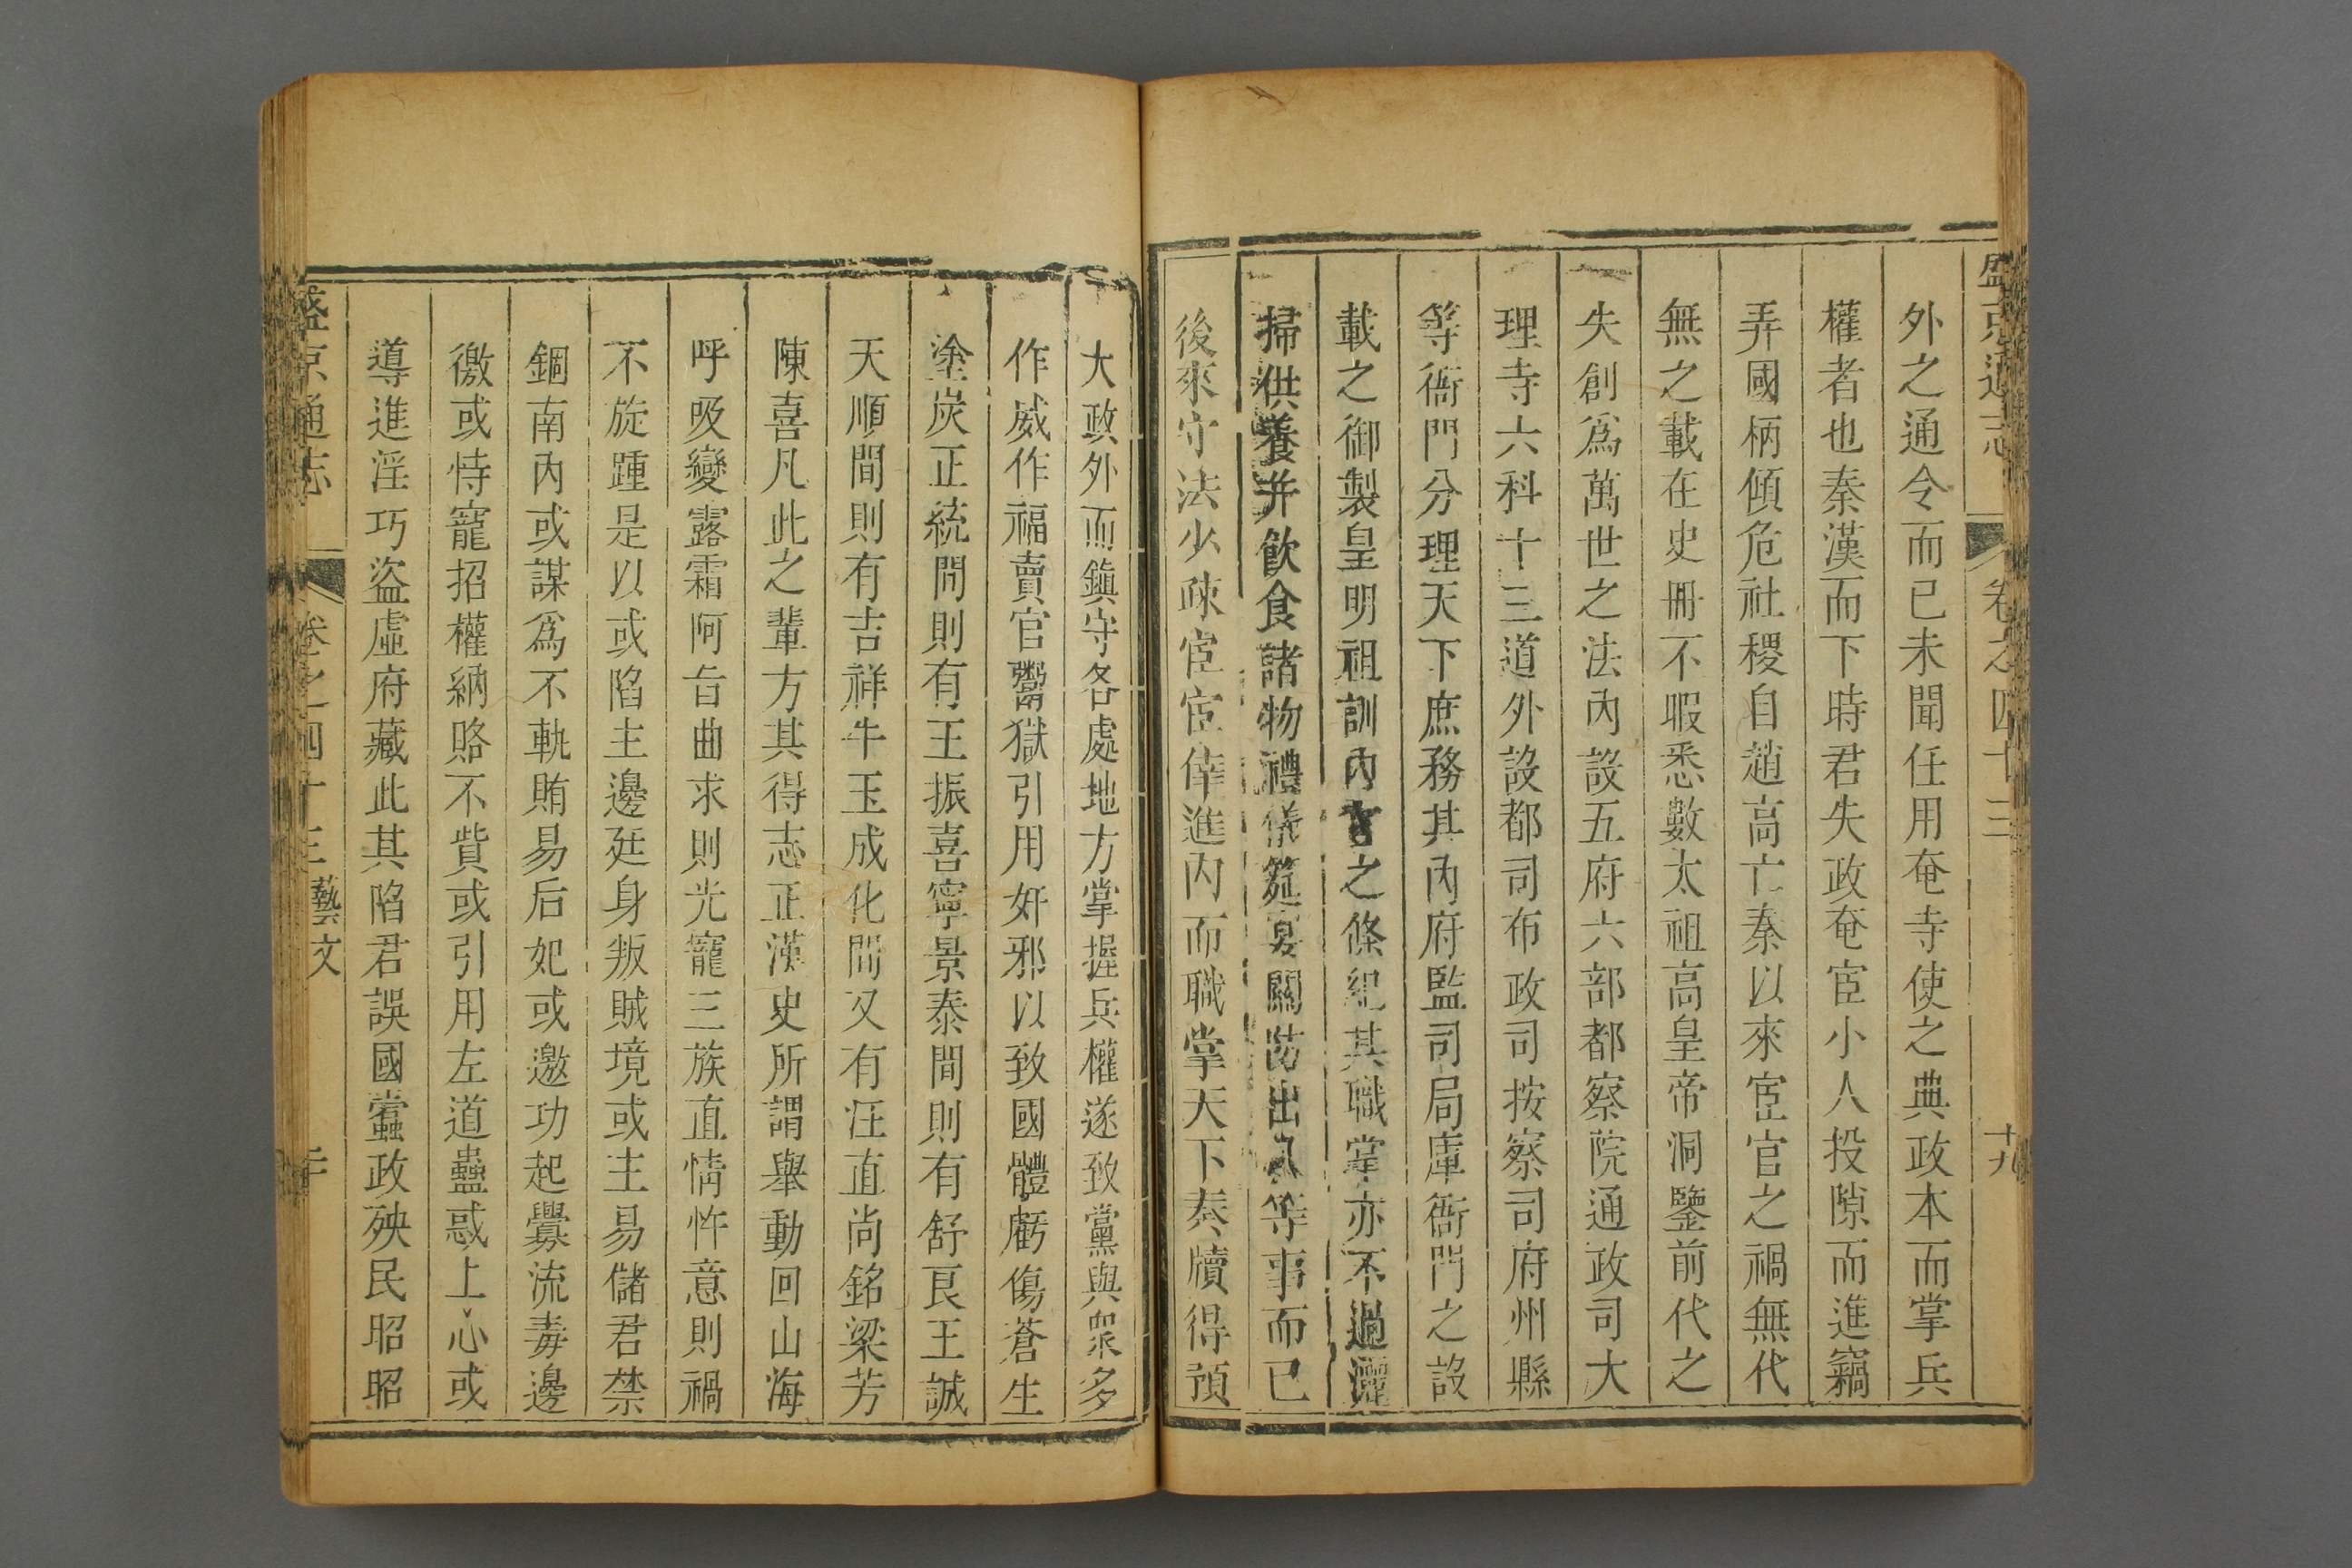 盛京通志 卷之四十三 十九
外之通令而已未聞任用奄寺使之典政本而掌兵
權者也秦漢而下時君失政奄宦小人投隙而進竊
弄國柄傾危社稷自趙高亡秦以來宦官之禍無代
無之載在史冊不暇悉數太祖高皇帝洞鑒前代之
失創爲萬世之法內設五府六部都察院通政司大
理寺六科十三道外設都司布政司按察司府州縣
等衙門分理天下庶務其內府監司局庫衙門之設
載之御製皇明祖訓內官之條紀其職掌亦不過灑
掃供養并飲食諸物禮儀筵宴關防出入等事而已
後來守法少疎宦官倖進內而職掌天下奏牘得預
大政外而鎭守各處地方掌握兵權遂致黨與衆多
作威作福賣官鬻獄引用奸邪以致國體虧傷蒼生
塗炭正統間則有王振喜寧景泰間則有舒良王誠
天順間則有吉祥牛玉成化間又有汪直尚銘梁芳
陳喜凡此之輩方其得志正漢史所謂舉動回山海
呼吸變露霜阿旨曲求則光寵三族直情忤意則禍
不旋踵是以或陷主邊廷身叛賊境或主易儲君禁
錮南內或謀爲不軌賄易后妃或邀功起釁流毒邊
徼或恃寵招權納賂不貲或引用左道蠱惑上心或
導進淫巧盜虛府藏此其陷君誤國蠹政殃民昭昭
盛京通志 卷之四十三 藝文 二十